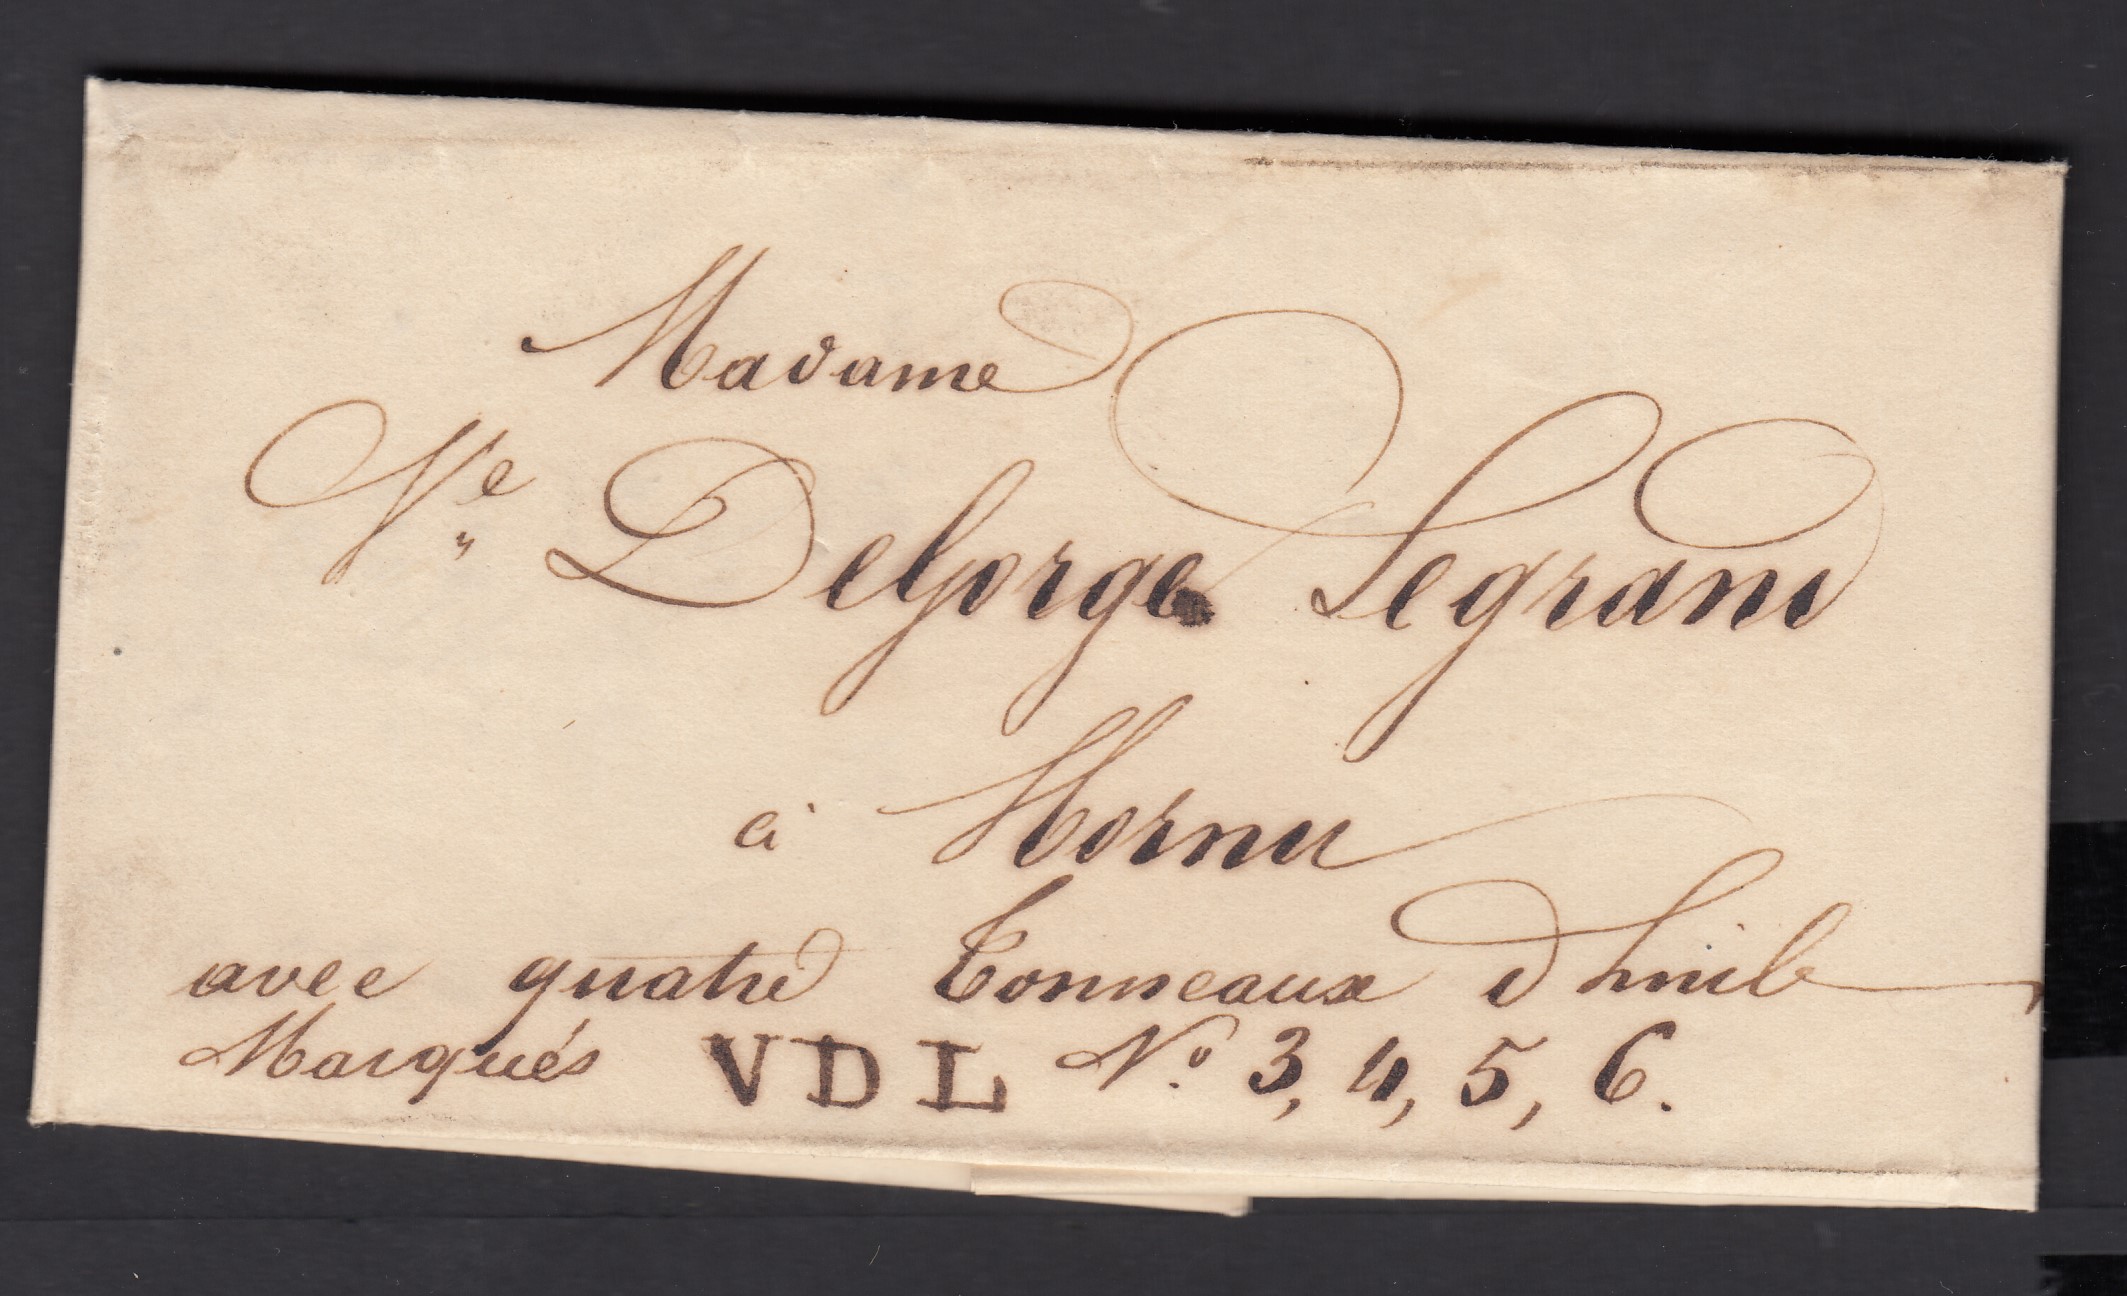 Madame
Ve Delforge Legrand
à Hornu
avec quatre Tonneaux d'huile
Marqués VDL No. 3, 4, 5, 6.